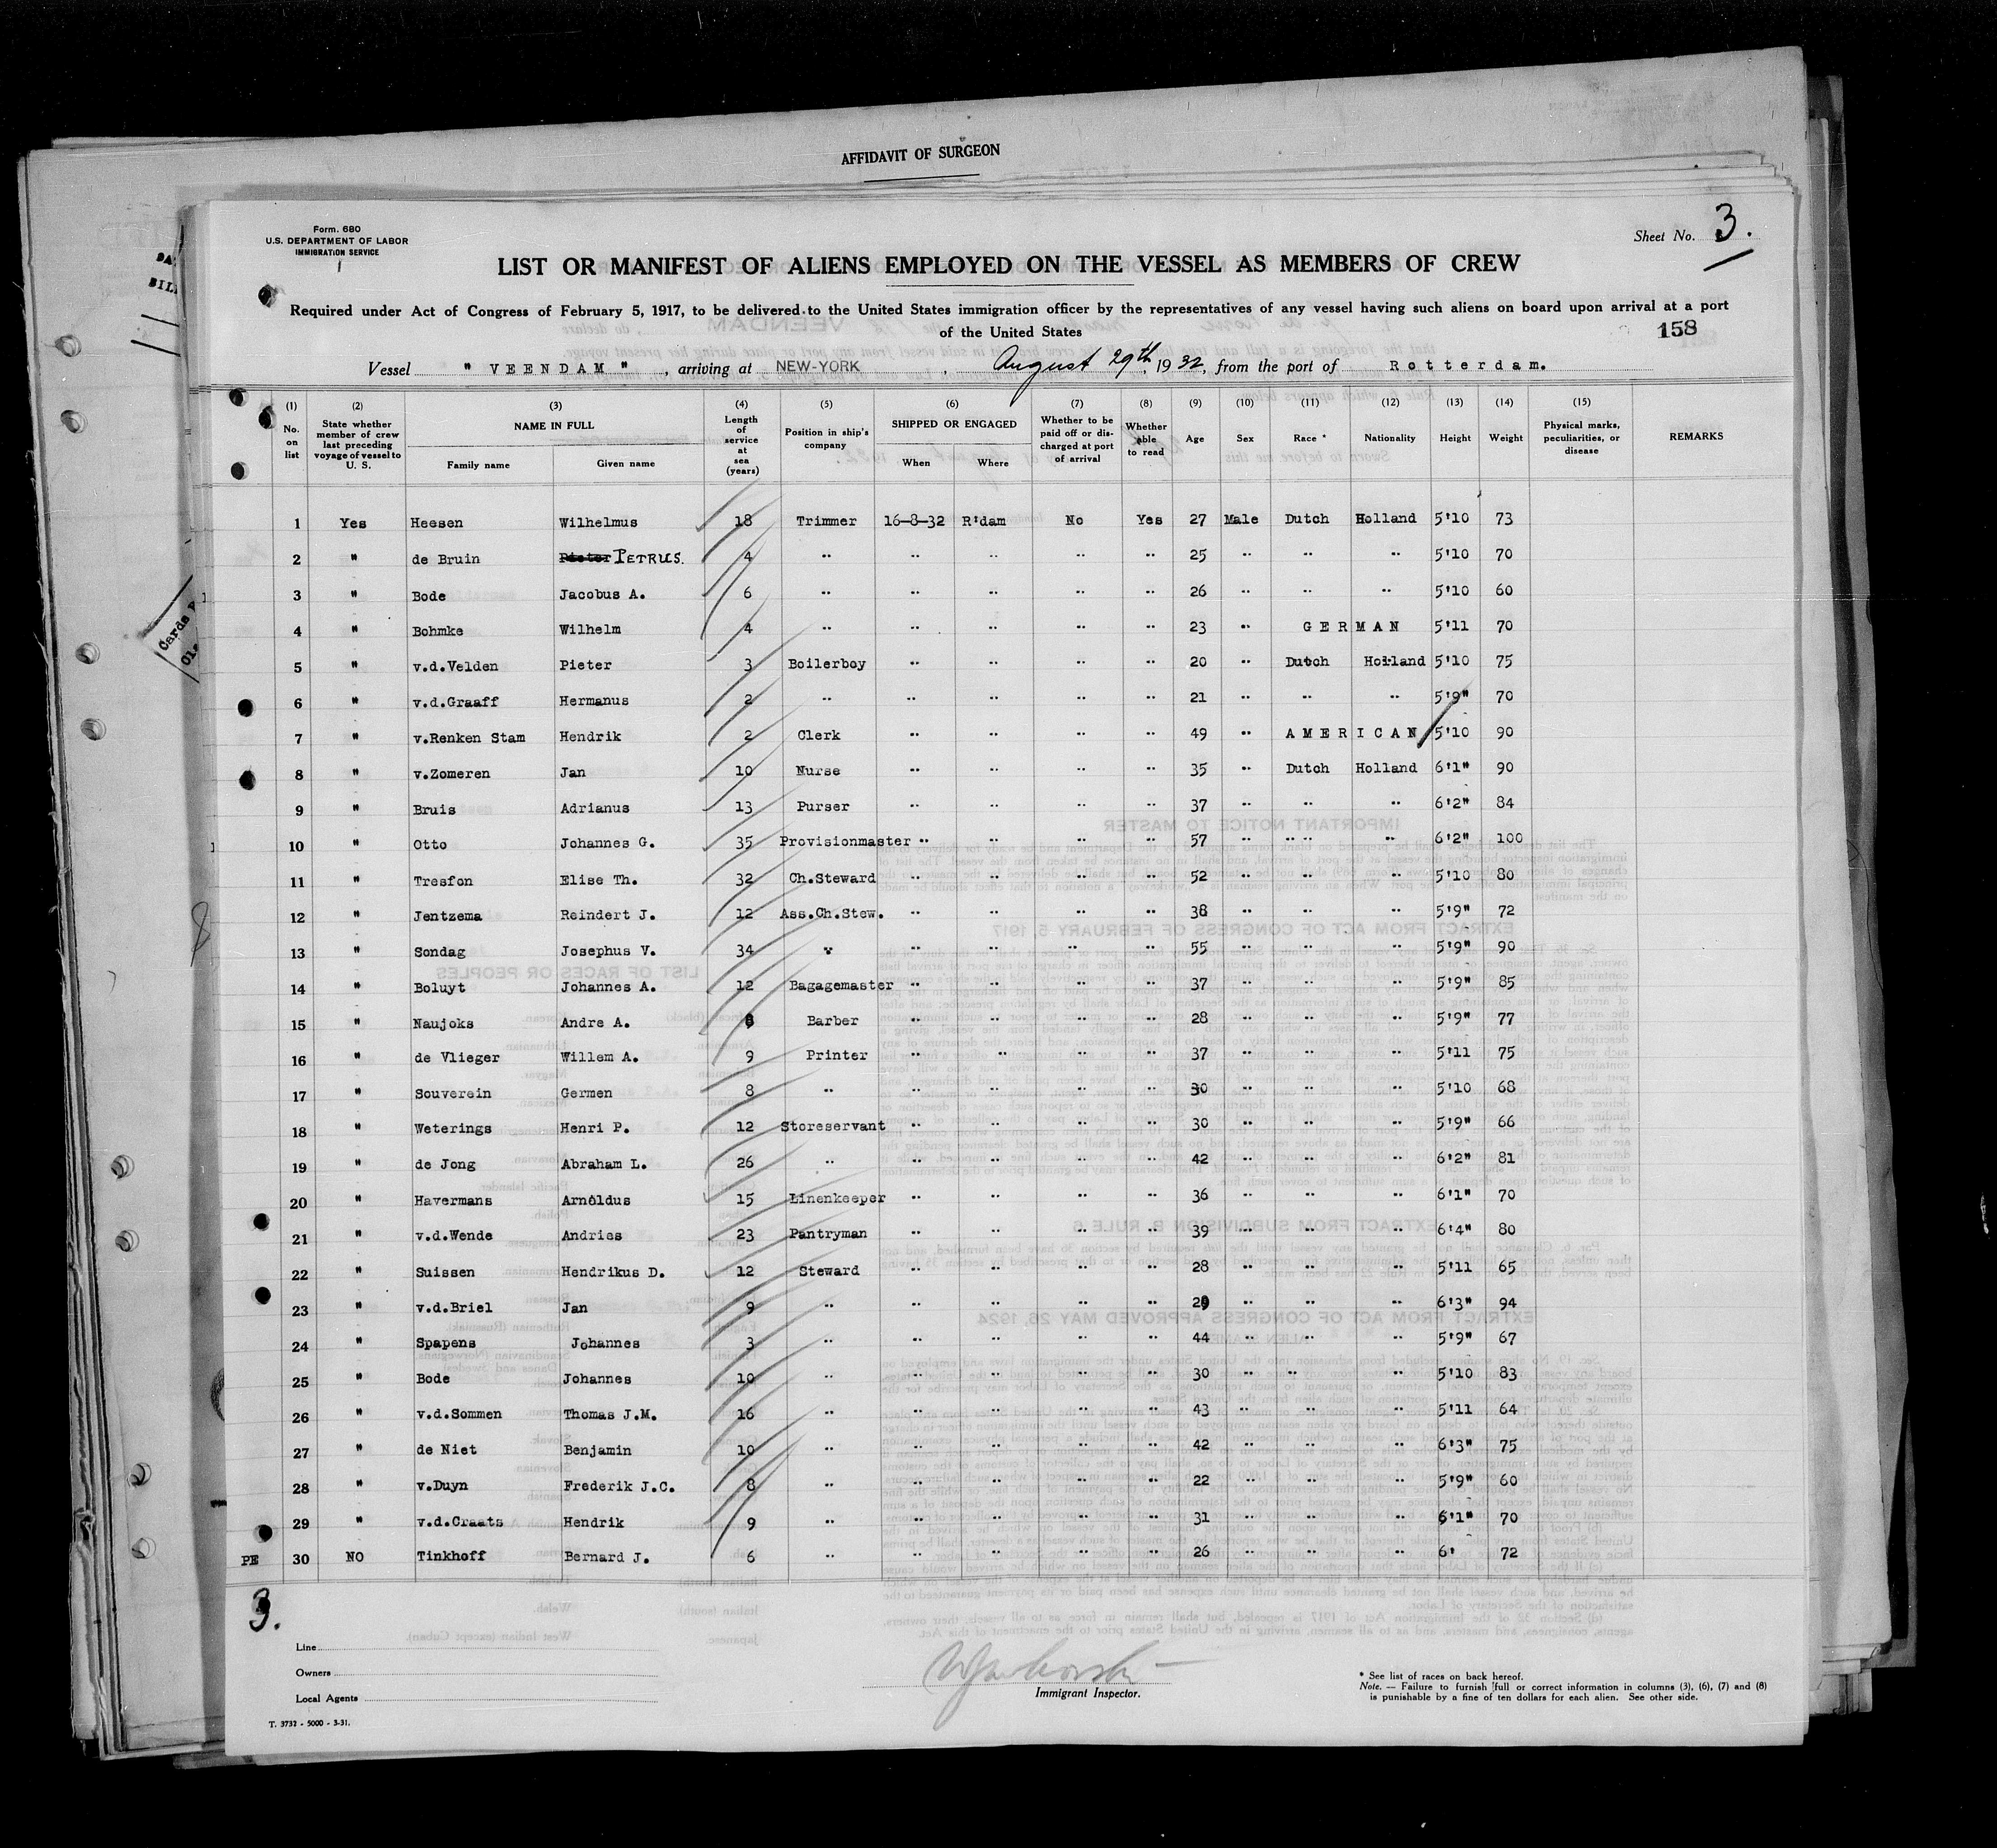 AFFIDAVIT OF SURGEON
Form. 680
U.S. DEPARTMENT OF LABOR
IMMIGRATION SERVICE
Sheet No. 3.
LIST OR MANIFEST OF ALIENS EMPLOYED ON THE VESSEL AS MEMBERS OF CREW
Required under Act of Congress of February 5, 1917, to be delivered to the United States immigration officer by the representatives of any vessel having such aliens on board upon arrival at a port
of the United States
158
Vessel " VEENDAM ", arriving at NEW-YORK, August 29th, 1932, from the port of Rotterdam.
(1) No. on list (2) State whether member of crew last preceding voyage of vessel to U. S. (3) NAME IN FULL Family name Given name (4) Length of service at sea (years) (5) Position in ship's company (6) SHIPPED OR ENGAGED When Where (7) Whether to be paid off or discharged at port of arrival (8) Whether able to read (9) Age (10) Sex (11) Race * (12) Nationality (13) Height (14) Weight (15) Physical marks, peculiarities, or disease REMARKS
1 Yes Heesen Wilhelmus 18 Trimmer 16-8-32 R'dam No Yes 27 Male Dutch Holland 5'10 73
2 " de Bruin Pieter PETRUS. 4 " " " " " 25 " " " 5'10 70
3 " Bode Jacobus A. 6 " " " " " 26 " " " 5'10 60
4 " Bohmke Wilhelm 4 " " " " " 23 " GERMAN 5'11 70
5 " v.d.Velden Pieter 3 Boilerboy " " " " 20 " Dutch Holland 5'10 75
6 " v.d.Graaff Hermanus 2 " " " " " 21 " " " 5'9" 70
7 " v.Renken Stam Hendrik 2 Clerk " " " " 49 " AMERICAN 5'10 90
8 " v.Zomeren Jan 10 Nurse " " " " 35 " Dutch Holland 6'1" 90
9 " Bruis Adrianus 13 Purser " " " " 37 " " " 6'2" 84
10 " Otto Johannes G. 35 Provisionmaster " " " " 57 " " " 6'2" 100
11 " Tresfon Elise Th. 32 Ch.Steward " " " " 52 " " " 5'10 80
12 " Jentzema Reindert J. 12 Ass.Ch.Stew. " " " " 38 " " " 5'9" 72
13 " Sondag Josephus V. 34 " " " " " 55 " " " 5'9" 90
14 " Boluyt Johannes A. 12 Bagagemaster " " " " 37 " " " 5'9" 85
15 " Naujoks Andre A. Barber " " " " 28 " " " 5'9" 77
16 " de Vlieger Willem A. 9 Printer " " " " 37 " " " 5'11 75
17 " Souverein Germen 8 " " " " " 30 " " " 5'10 68
18 " Weterings Henri P. 12 Storeservant " " " " 30 " " " 5'9" 66
19 " de Jong Abraham L. 26 " " " " " 42 " " " 6'2" 81
20 " Havermans Arnoldus 15 Linenkeeper " " " " 36 " " " 6'1" 70
21 " v.d.Wende Andries 23 Pantryman " " " " 39 " " " 6'4" 80
22 " Suissen Hendrikus D. 12 Steward " " " " 28 " " " 5'11 65
23 " v.d.Briel Jan 9 " " " " " 29 " " " 6'3" 94
24 " Spapens Johannes 3 " " " " " 44 " " " 5'9" 67
25 " Bode Johannes 10 " " " " " 30 " " " 5'10 83
26 " v.d.Sommen Thomas J.M. 16 " " " " " 43 " " " 5'11 64
27 " de Niet Benjamin 10 " " " " " 42 " " " 6'3" 75
28 " v.Duyn Frederik J.C. 8 " " " " " 22 " " " 5'9" 60
29 " v.d.Craats Hendrik 9 " " " " " 31 " " " 6'1" 70
PE 30 NO Tinkhoff Bernard J. 6 " " " " " 26 " " " 6' 72
3.
Line
Owners
Local Agents
Immigrant Inspector.
* See list of races on back hereof.
Note. — Failure to furnish full or correct information in columns (3), (6), (7) and (8)
is punishable by a fine of ten dollars for each alien. See other side.
T. 3732 - 5000 - 3-31.